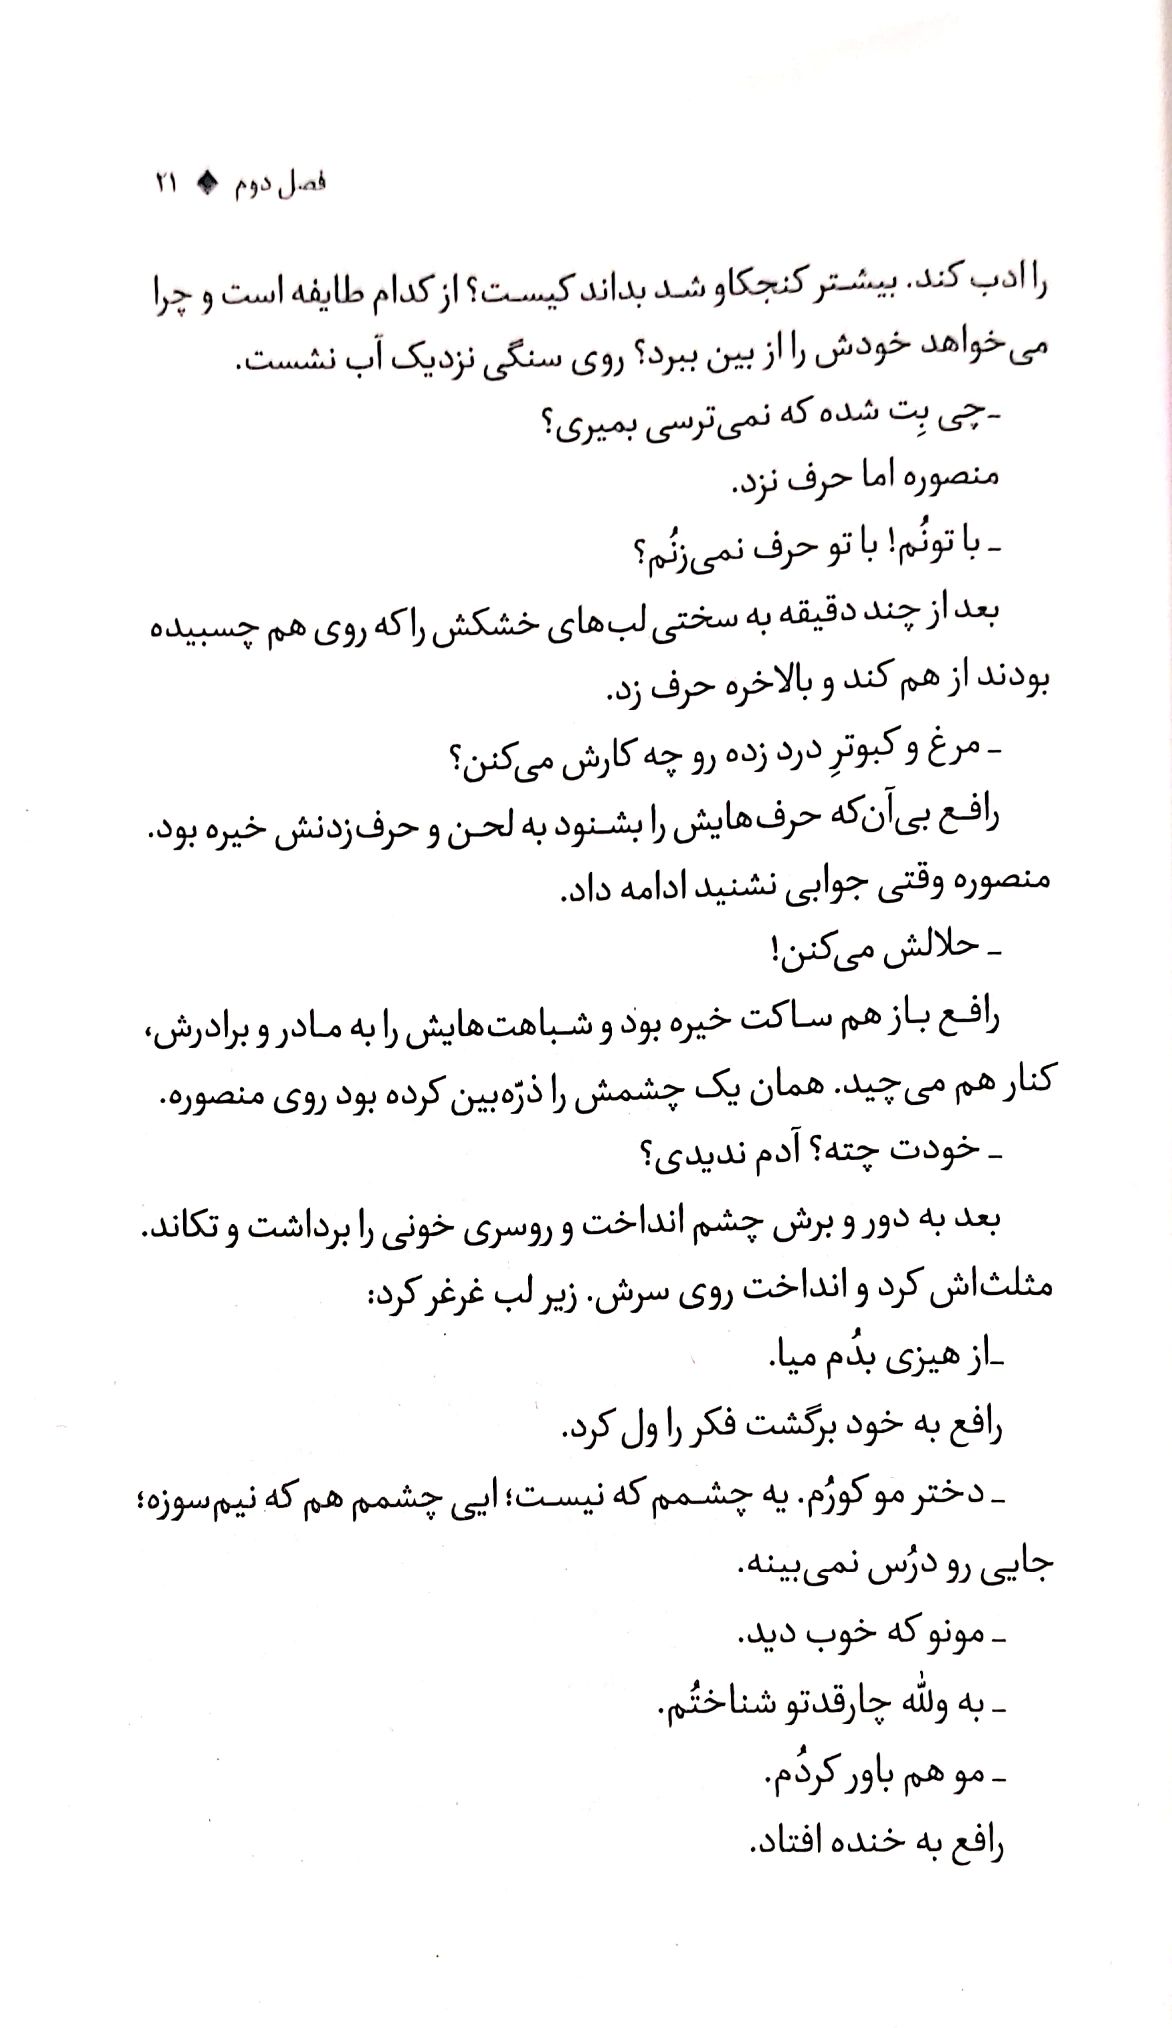 فصل دوم ◆ ۲۱
را ادب کند. بیشتر کنجکاو شد بداند کیست؟ از کدام طایفه است و چرا
می‌خواهد خودش را از بین ببرد؟ روی سنگی نزدیک آب نشست.
ـ چی بِت شده که نمی‌ترسی بمیری؟
منصوره اما حرف نزد.
ـ با تونُم! با تو حرف نمی‌زنُم؟
بعد از چند دقیقه به سختی لب‌های خشکش را که روی هم چسبیده
بودند از هم کند و بالاخره حرف زد.
ـ مرغ و کبوترِ درد زده رو چه کارش می‌کنن؟
رافع بی‌آن‌که حرف‌هایش را بشنود به لحن و حرف‌زدنش خیره بود.
منصوره وقتی جوابی نشنید ادامه داد.
ـ حلالش می‌کنن!
رافع باز هم ساکت خیره بود و شباهت‌هایش را به مادر و برادرش،
کنار هم می‌چید. همان یک چشمش را ذرّه‌بین کرده بود روی منصوره.
ـ خودت چته؟ آدم ندیدی؟
بعد به دور و برش چشم انداخت و روسری خونی را برداشت و تکاند.
مثلث‌اش کرد و انداخت روی سرش. زیر لب غرغر کرد:
ـ از هیزی بدُم میا.
رافع به خود برگشت فکر را ول کرد.
ـ دختر مو کورُم. یه چشمم که نیست؛ ایی چشمم هم که نیم‌سوزه؛
جایی رو درُس نمی‌بینه.
ـ مونو که خوب دید.
ـ به ولله چارقدتو شناختُم.
ـ مو هم باور کردُم.
رافع به خنده افتاد.